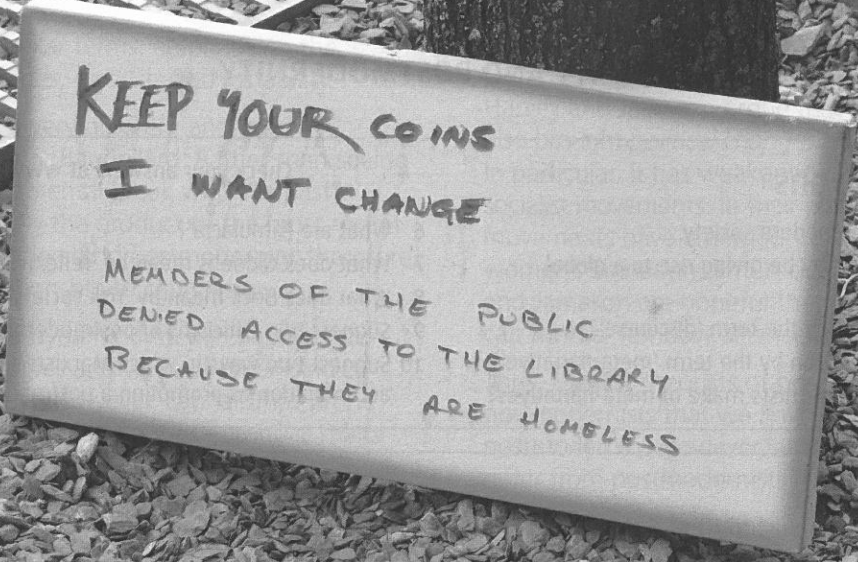 KEEP YOUR COINS
I WANT CHANGE
MEMBERS OF THE PUBLIC
DENIED ACCESS TO THE LIBRARY
BECAUSE THEY ARE HOMELESS